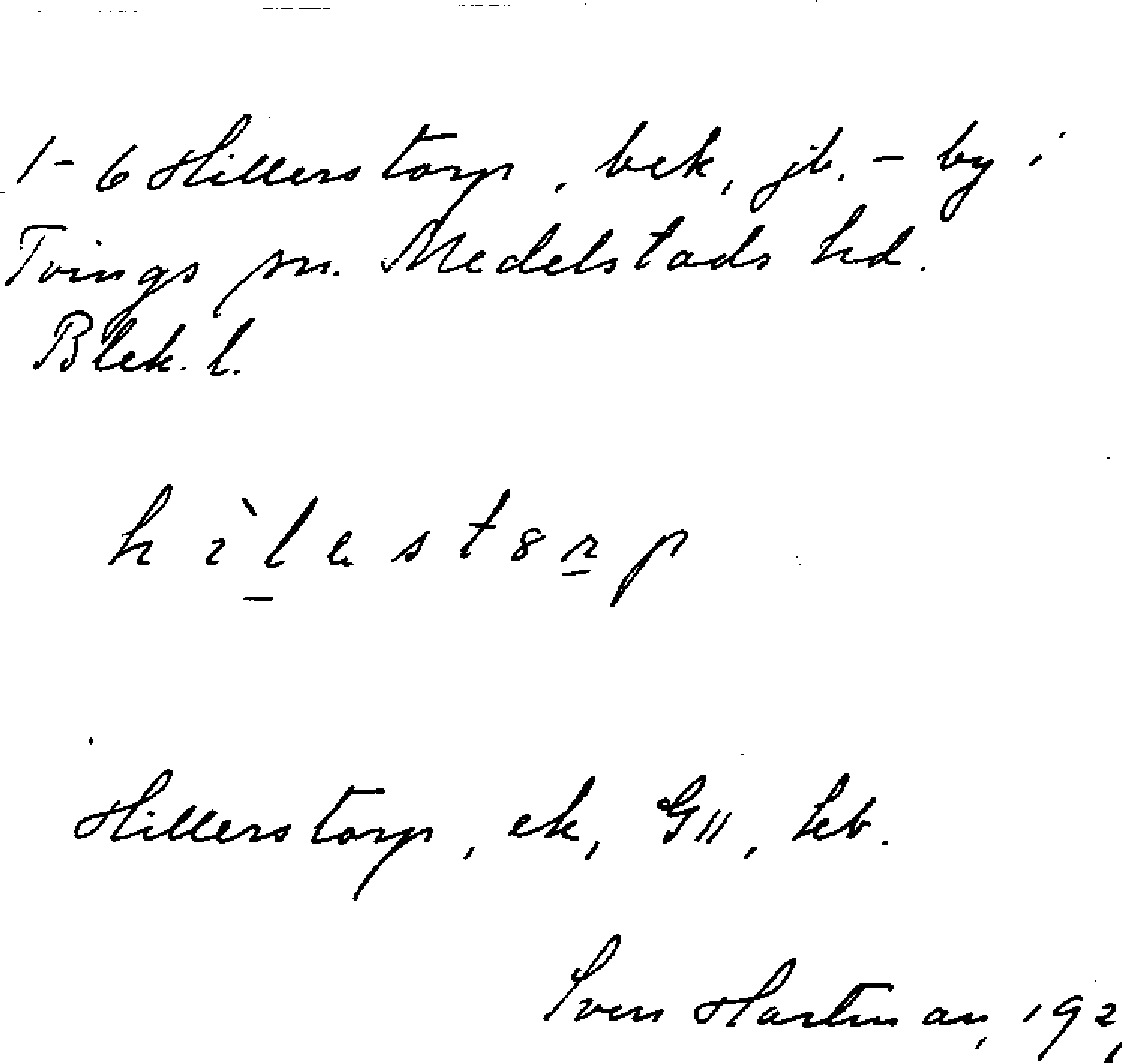 1-6 Hillerstorp, bek, jb. - by i
Tvings sn. Medelstads hd.
Blek. l.
hìlastorp
Hillerstorp, ek, GII, hb.
Sven Hartman, 192